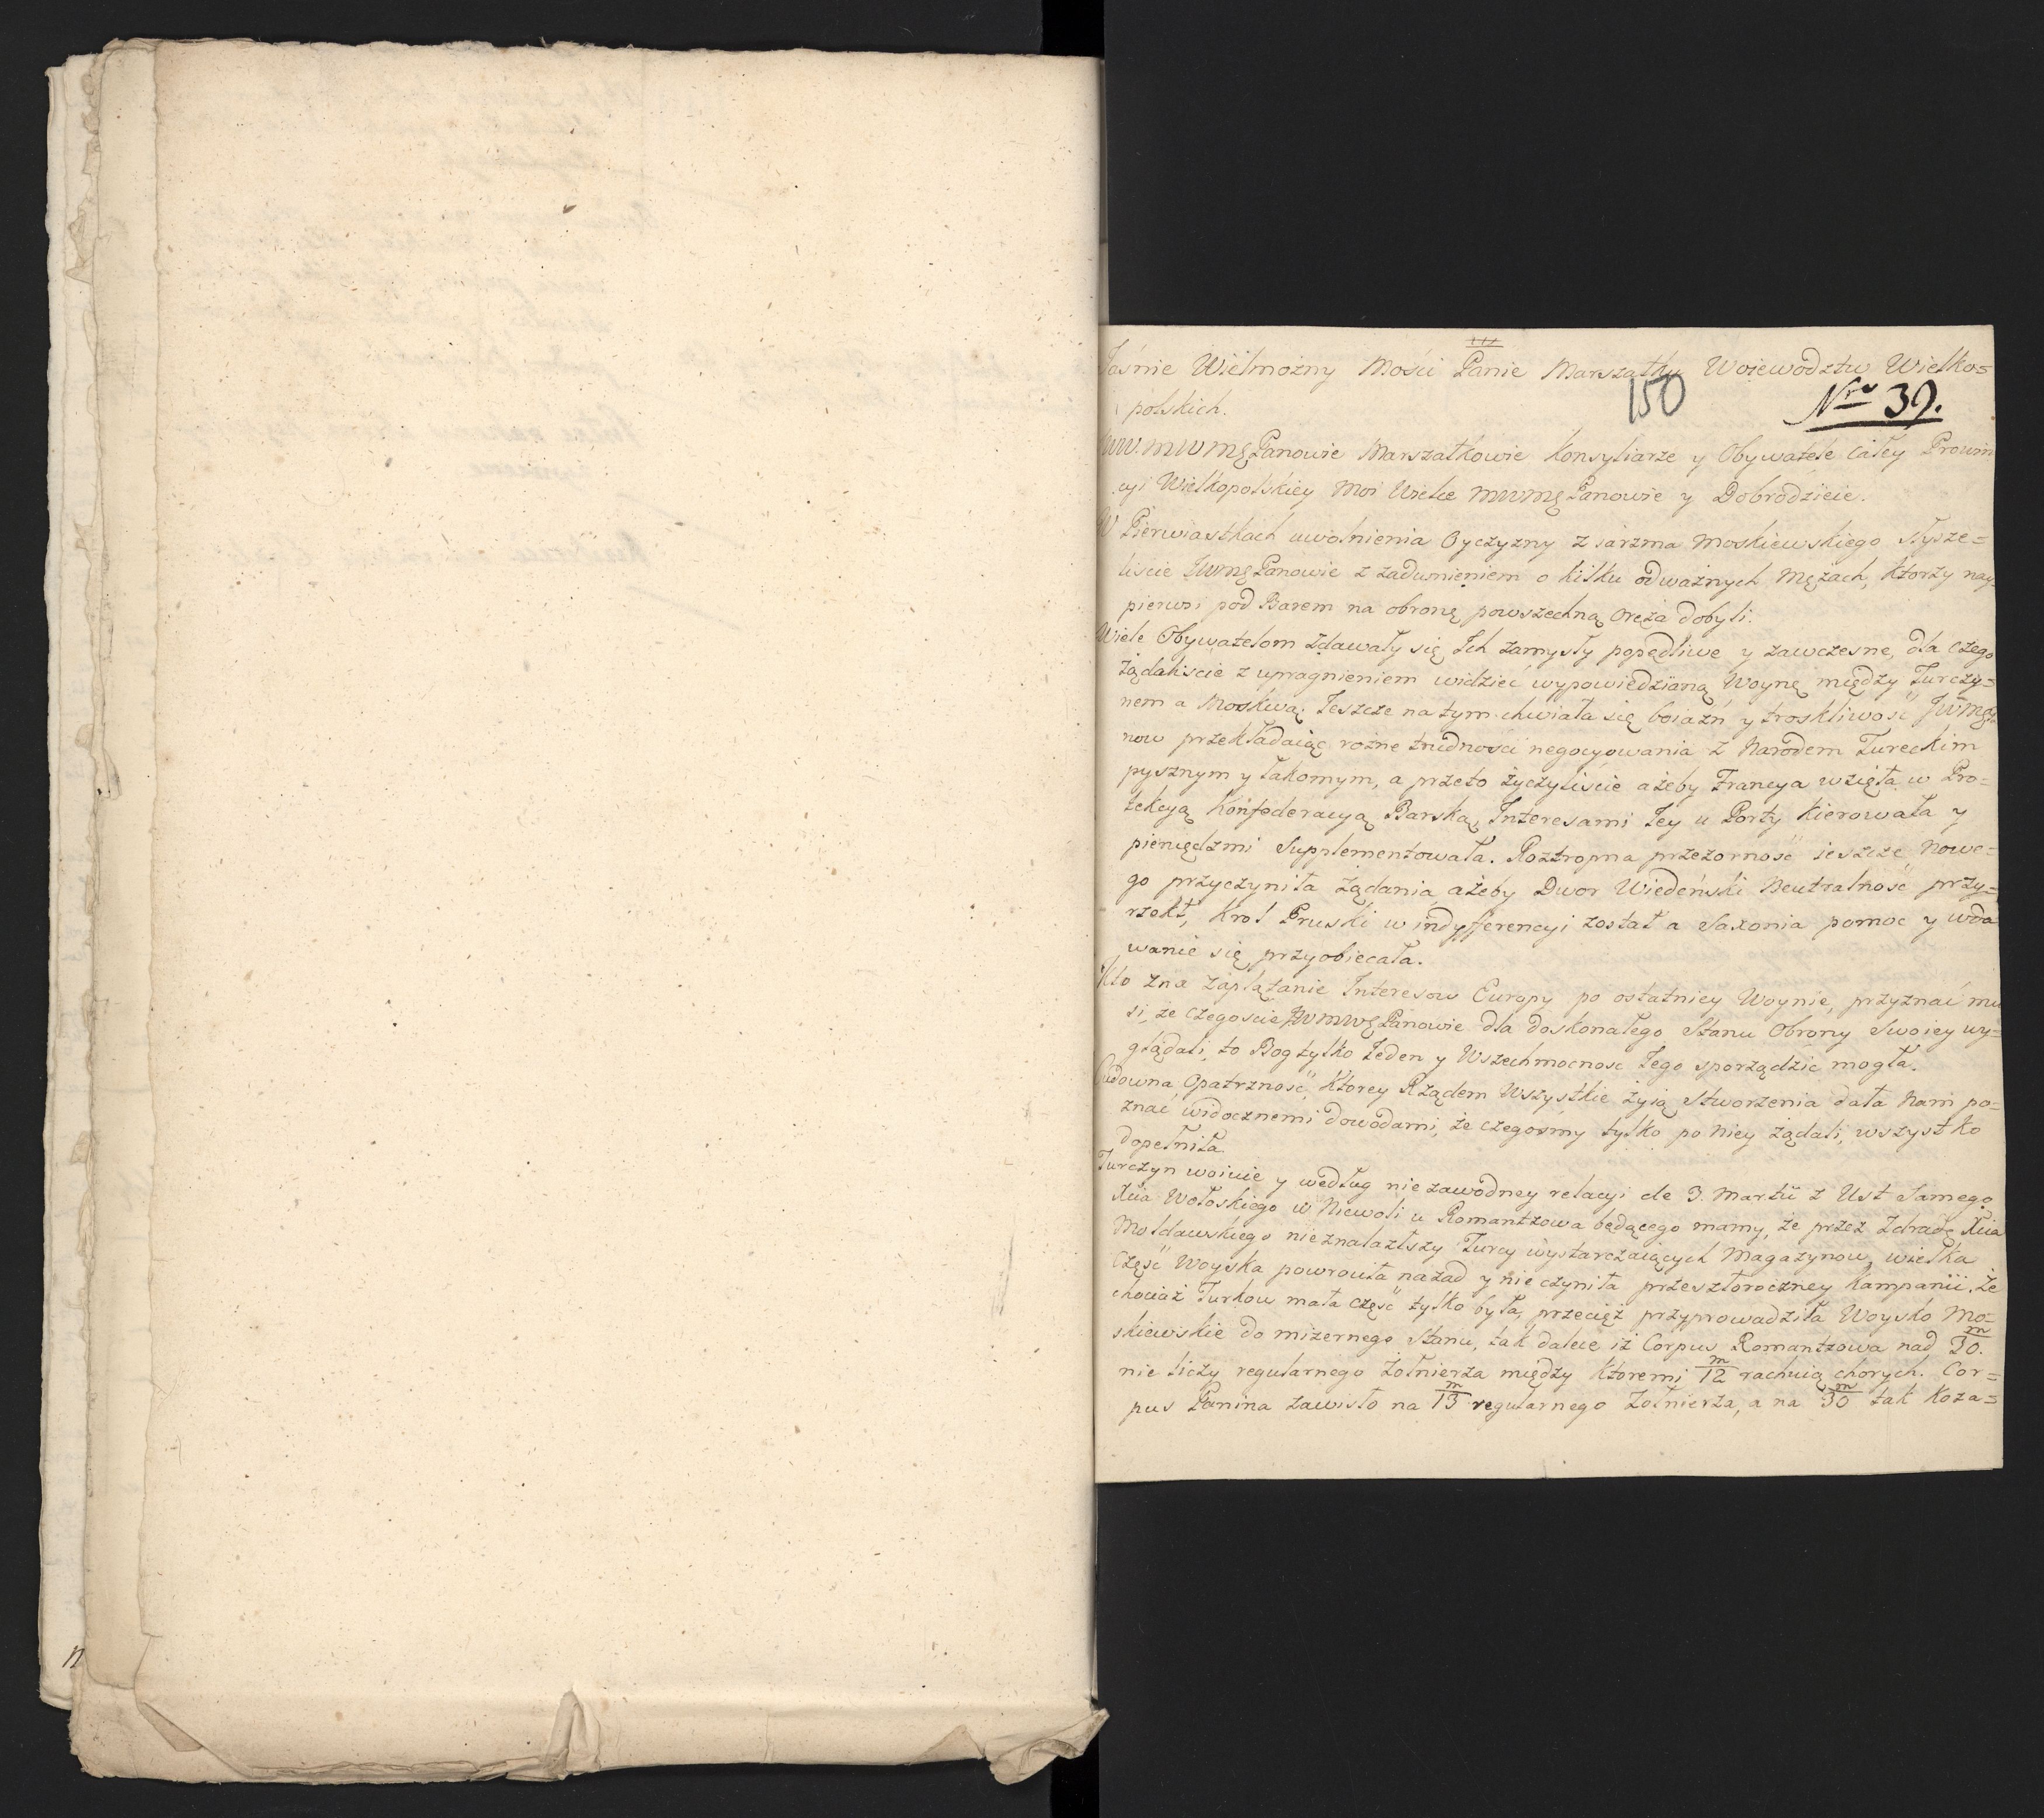 Jaśnie Wielmożny Mości Panie Marszałku Woiewodztw Wielko=
polskich.
150
Nro 39.
JWW. MWMę Panowie Marszałkowie Konsyliarze y Obywatele całey Prowin
cyi Wielkopolskiey Moi Wielce MWMę Panowie y Dobrodzieie.
W Pierwiastkach uwolnienia Oyczyzny z iarzma Moskiewskiego słysze=
liście JWMę Panowie z zadumieniem o kilku odważnych Mężach, ktorzy nay=
pierwsi pod Barem na obronę powszechną Oręża dobyli.
Wiele Obywatelom zdawały się Ich zamysły popędliwe y zawczesne, dla czego
żądaliście z upragnieniem widzieć wypowiedzianą Woynę między Turczy=
nem a Moskwą. Ieszcze na tym chwiała się boiaźń y troskliwość JWMę
now przekładaiąc rożne trudności negocyowania z Narodem Tureckim
pysznym y łakomym, a przeto życzyliście ażeby Francya wzięła w Pro=
tekcyą Konfederacyą Barską, Interesami Iey u Porty kierowała y
pieniędzmi Supplementowała. Roztropna przezorność ieszcze Nowe=
go przyczyniła żądania, ażeby Dwor Wiedeński Neutralność przy=
rzekł, Krol Pruski w indyfferencyi został a Saxonia pomoc y wda
wanie się przyobiecała.
Kto zna zaplątanie Interesow Europy po ostatniey Woynie, przyznać mu
si, że czegoscie JWMWę Panowie dla doskonałego Stanu Obrony Swoiey wy=
glądali, to Bog tylko Ieden y Wszechmocnosc Iego sporządzic mogła.
Cudowna Opatrzność, Ktorey Rządem Wszystkie żyią Stworzenia dała Nam po=
znać widocznemi dowodami, że czegośmy tylko po Niey żądali, wszystko
dopełniła.
Turczyn woiuie y według niezawodney relacyi de 3. Martii z Ust Samego
Xcia Wołoskiego w Niewoli u Romantzowa będącego mamy, że przez zdradę Xcia
Mołdawskiego nieznalazłszy Turcy wystarczaiących Magazynow, wielka
Część Woyska powrociła nazad y nie czyniła przeszłoroczney Kampanii, że
chociaż Turkow mała część tylko była, przecięż przyprowadziła Woysko Mo=
skiewskie do mizernego Stanu, tak dalece iż Corpus Romantzowa nad 30/m.
nie liczy regularnego żołnierza między ktoremi 12/m rachuią chorych. Cor=
pus Panina zawisło na 13/m regularnego Zołnierza, a na 30/m tak Koza=